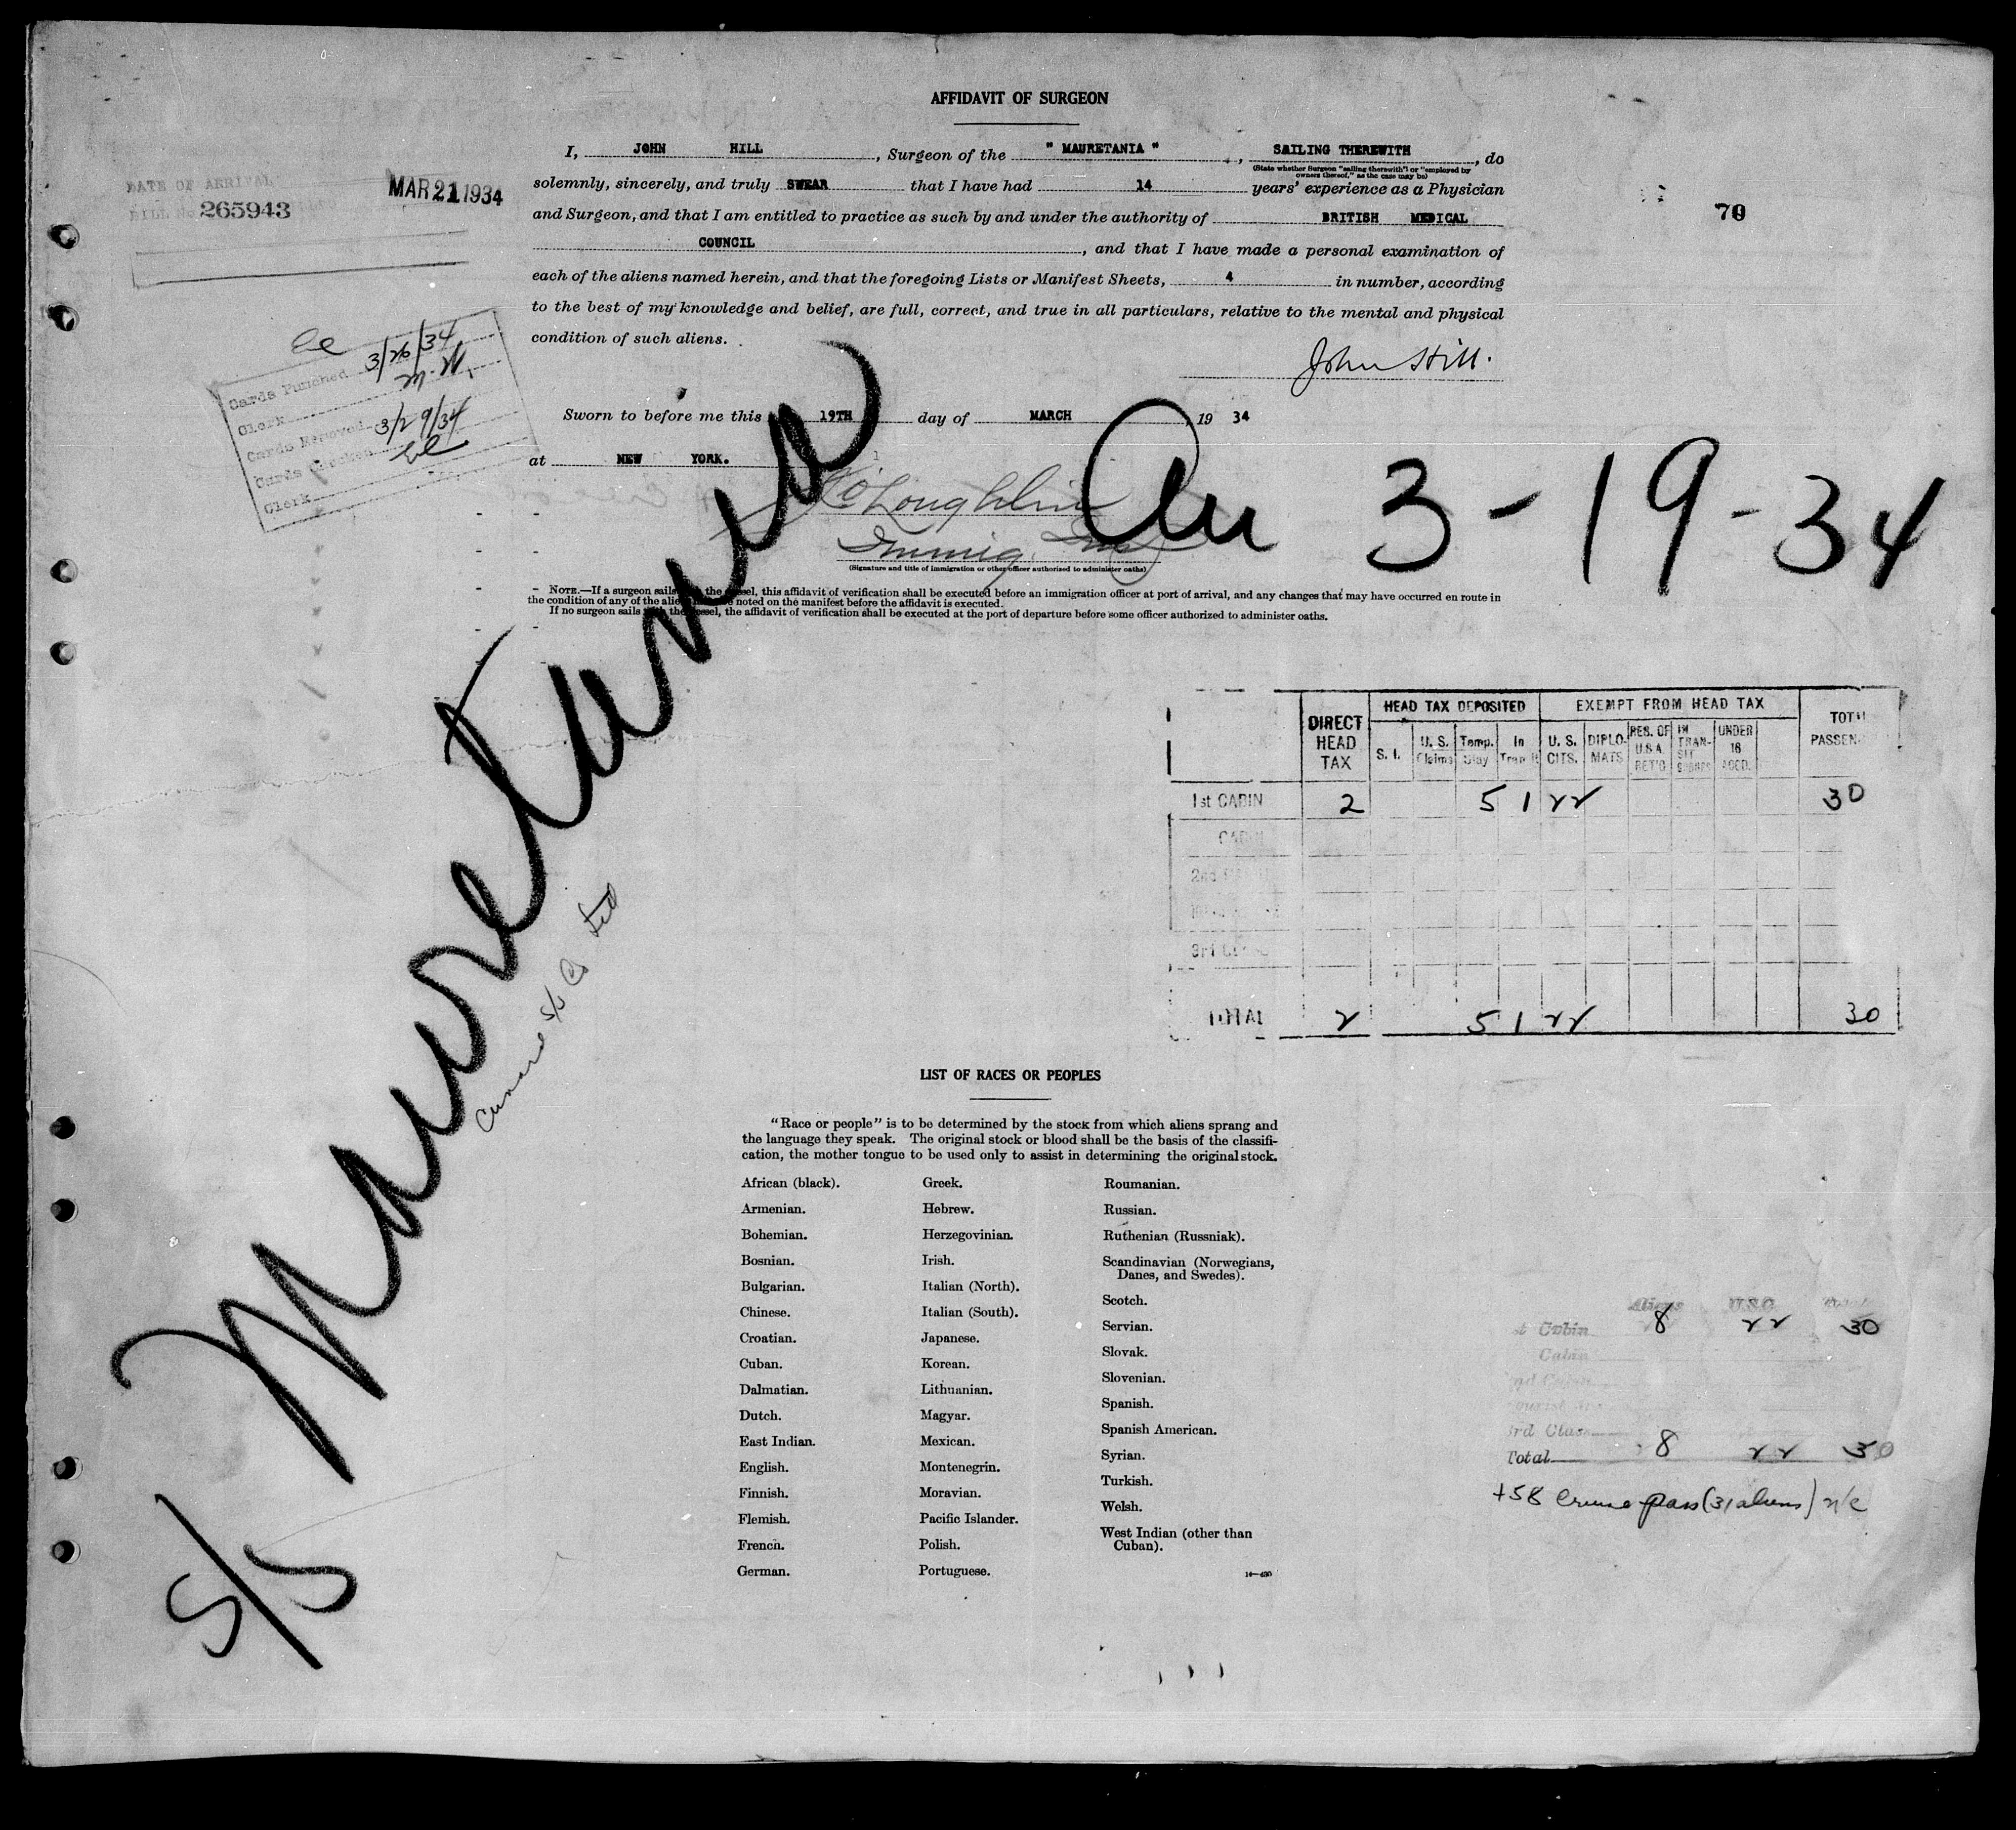 AFFIDAVIT OF SURGEON
I, JOHN HILL, Surgeon of the " MAURETANIA ", SAILING THEREWITH, do
(State whether Surgeon "sailing therewith" or "employed by
owners thereof," as the case may be)
solemnly, sincerely, and truly SWEAR that I have had 14 years' experience as a Physician
and Surgeon, and that I am entitled to practice as such by and under the authority of BRITISH MEDICAL
COUNCIL, and that I have made a personal examination of
each of the aliens named herein, and that the foregoing Lists or Manifest Sheets, 4 in number, according
to the best of my knowledge and belief, are full, correct, and true in all particulars, relative to the mental and physical
condition of such aliens.
John Hill.
DATE OF ARRIVAL
MAR 21 1934
BILL No. 265943
70
3/26/34
Cards Punched
M.W.
Clerk
Cards Removed 3/29/34
Cards Checked
Clerk
Sworn to before me this 19TH day of MARCH, 19 34
at NEW YORK.
O'Loughlin
Immig. Ins
(Signature and title of immigration or other officer authorized to administer oaths)
Arr 3-19-34
NOTE.—If a surgeon sails with the vessel, this affidavit of verification shall be executed before an immigration officer at port of arrival, and any changes that may have occurred en route in
the condition of any of the aliens noted on the manifest before the affidavit is executed.
If no surgeon sails with the vessel, the affidavit of verification shall be executed at the port of departure before some officer authorized to administer oaths.
S/S Mauretania
Cunard S/S Co Ltd
DIRECT HEAD TAX
HEAD TAX DEPOSITED
EXEMPT FROM HEAD TAX
TOTAL PASSEN
S. I.
U. S. Claims
Temp. Stay
In Transit
U. S. CITS.
DIPLO- MATS
RES. OF U.S.A. RET'D
IN TRAN- SIT
UNDER 16 ACCD.
1st CABIN 2 5 1 22 30
CABIN
2nd
3rd CLASS
TOTAL 2 5 1 22 30
LIST OF RACES OR PEOPLES
"Race or people" is to be determined by the stock from which aliens sprang and
the language they speak. The original stock or blood shall be the basis of the classifi-
cation, the mother tongue to be used only to assist in determining the original stock.
African (black).
Armenian.
Bohemian.
Bosnian.
Bulgarian.
Chinese.
Croatian.
Cuban.
Dalmatian.
Dutch.
East Indian.
English.
Finnish.
Flemish.
French.
German.
Greek.
Hebrew.
Herzegovinian.
Irish.
Italian (North).
Italian (South).
Japanese.
Korean.
Lithuanian.
Magyar.
Mexican.
Montenegrin.
Moravian.
Pacific Islander.
Polish.
Portuguese.
Roumanian.
Russian.
Ruthenian (Russniak).
Scandinavian (Norwegians,
Danes, and Swedes).
Scotch.
Servian.
Slovak.
Slovenian.
Spanish.
Spanish American.
Syrian.
Turkish.
Welsh.
West Indian (other than
Cuban).
Aliens U.S.C. Total
st Cabin 8 22 30
Cabin
3rd Class
Total 8 22 30
+58 Cruise pass (31 aliens) n/c